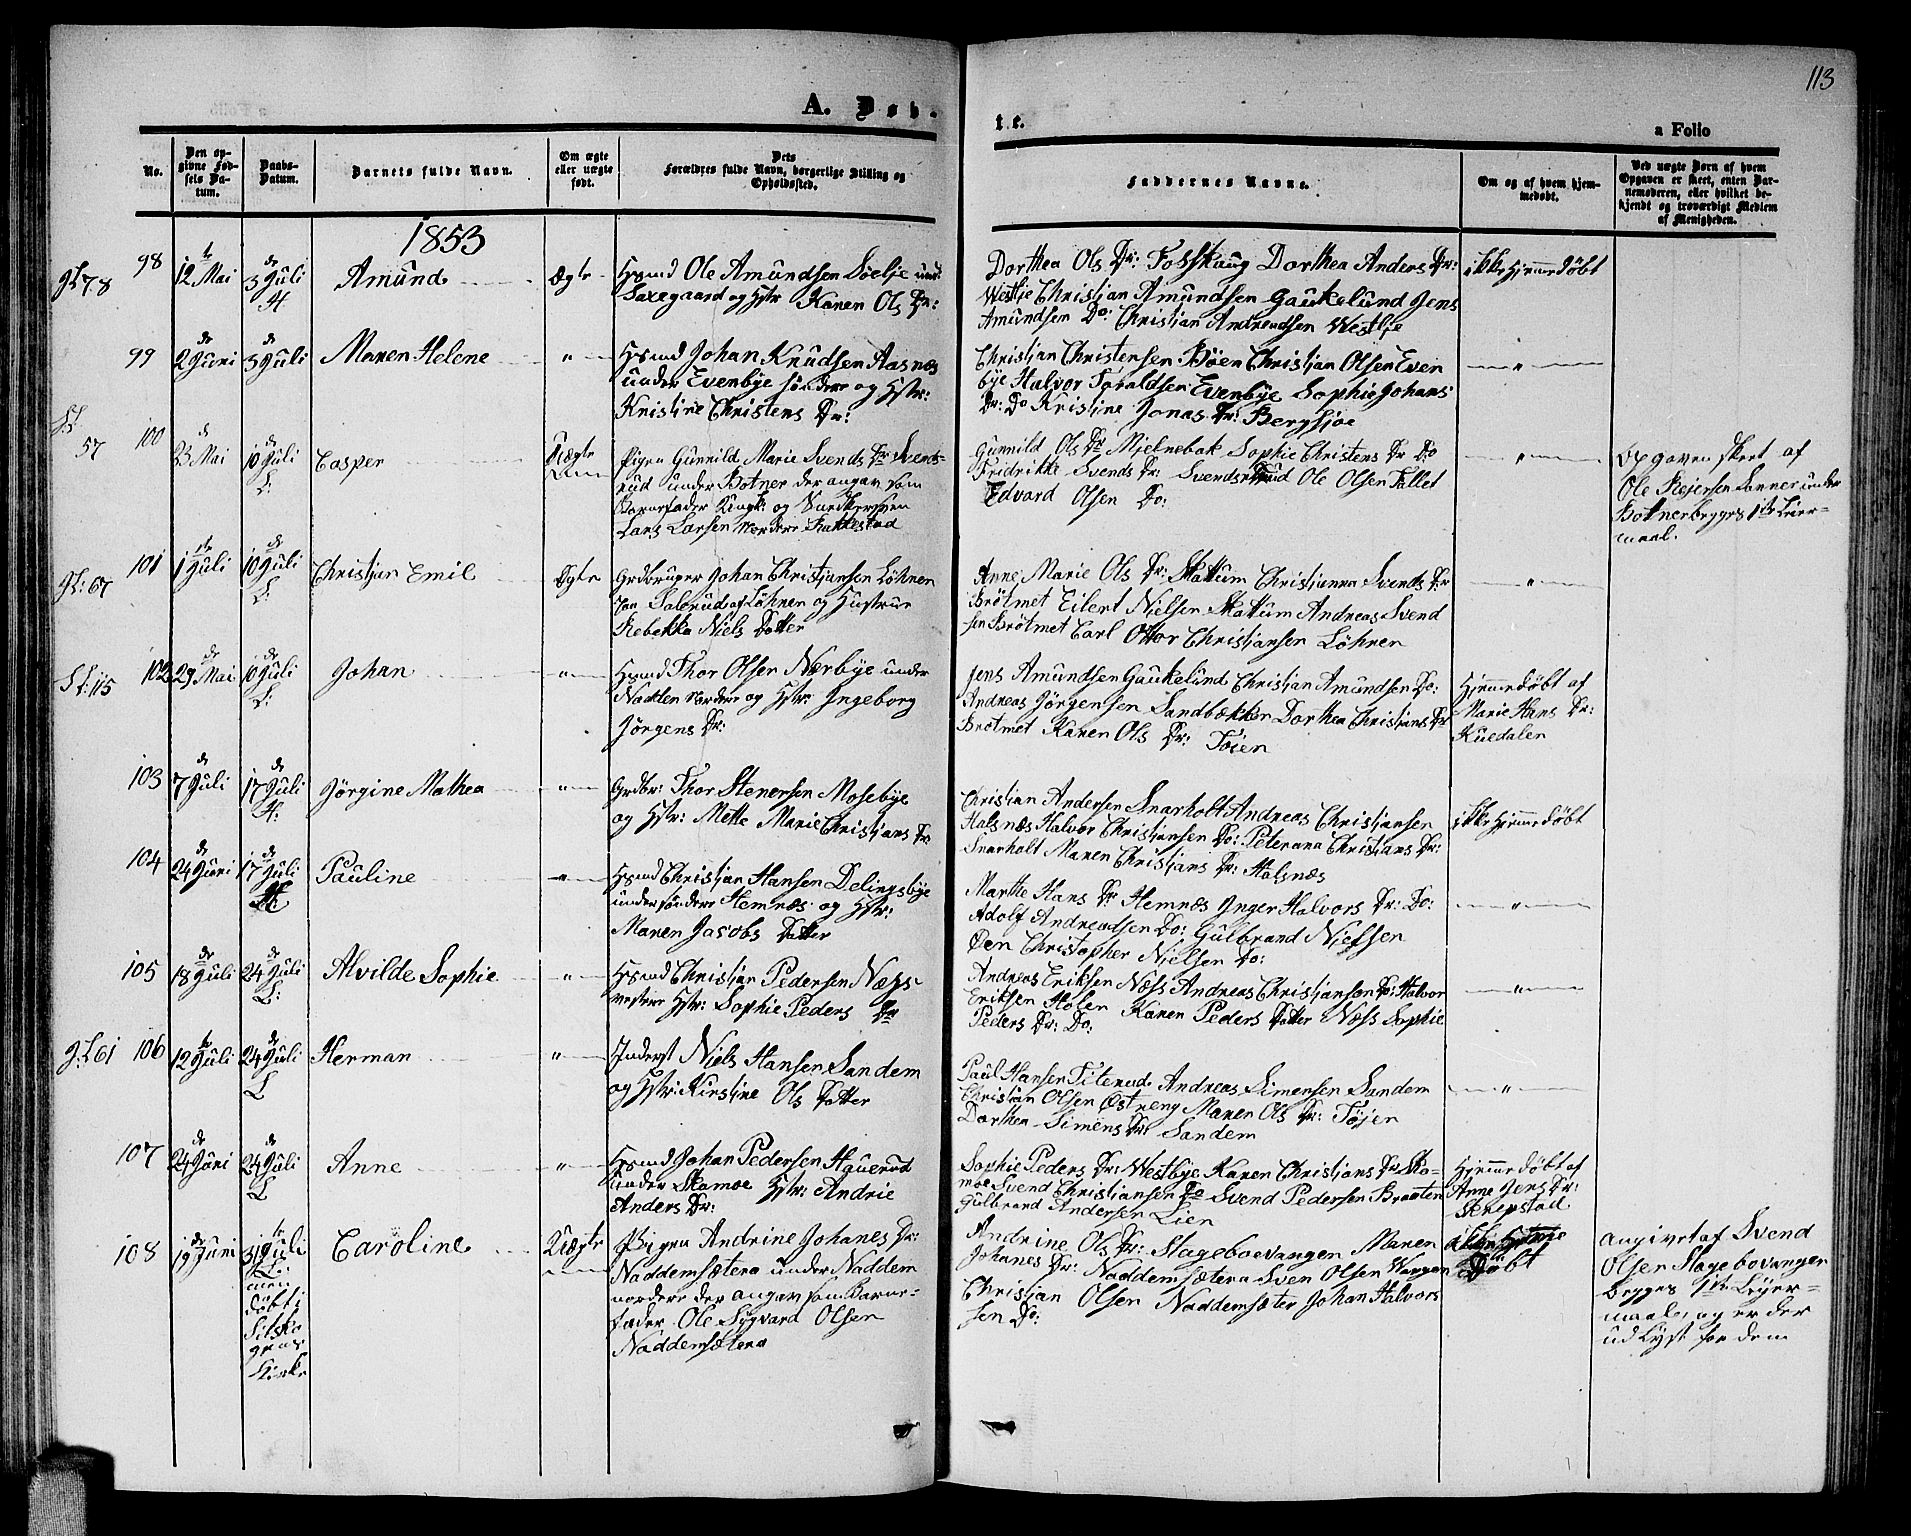 113
A. Døb-
te.
a Folio
No.
Den op-
givne Fød-
sels Da-
tum.
Daabs-
Datum.
Barnets fulde Navn.
Om ægte
eller uægte
født.
Dets
Forældres fulde Navn, borgerlige Stilling og
Opholdssted.
Faddernes Navne.
Om og af hvem hjem-
medøbt.
Ved uægte Børn af hvem
Opgaven er skeet, enten Bar-
nemoderen, eller hvilket be-
kjendt og troværdigt Medlem
af Menigheden.
1853
gL 78
98
12 Mai
de 3 Juli
H.
Amund
Ægte
Hsmd Ole Amundsen Sælje und:
Saxegaard og Hstr Karen Ols Dr:
Dorthea Ols Dr: Fosskaug Dorthea Anders Dr:
Westlje Christjan Amundsen Gaukelund Jens
Amundsen Do: Christjan Andreadsen Westlje
ikke Hjemmedøbt
99
de 2 Juni
de 3 Juli
Maren Helene
"
Hsmd Johan Knudsen Aasnæs
under Evenbye söndere og Hstr:
Kristine Christens Dr:
Christjan Christensen Böen Christjan Olsen Even
bye Halvor Toraldsen Evenbye Sophie Johans
Dr: Do Kristine Jonas Dr: Bergsjøe
"
57
100
de 23 Mai
de 10 Juli
L:
Casper
Uægte
Pigen Gunnild Marie Svends Dr Svends-
rud under Botner der angav som
Barnefader Ungk: og Snedkersven
Lars Larsen Nordere Bakkestad
Gunnild Ols Dr Mjelnebak Sophie Christens Dr Do
Fridrikke Svends Dr: Svendsrud Ole Olsen Fallet
Edvard Olsen Do:
"
Opgaven skeet af
Ole Rejersen Sanner under
Botner begges 1ste Leier-
maal.
gL: 67
101
1 Juli
de 10 Juli
L:
Christjan Emil
Ægte
Grdbruger Johan Christjansen Löhnen
Salerud af Löhnen og Hustrue
Rebekka Niels Datter
Anne Marie Ols Dr: Skattum Christjanna Svends Dr
Brötmet Eilert Nielsen Skattum Andreas Svend
sen Brötmet Carl Ottor Christjansen Löhnen
"
SL: 115
102
de 29 Mai
de 10 Juli
L:
Johan
"
Hsmd Thor Olsen Nærbye under
Nadden nordere og Hstr: Ingeborg
Jörgens Dr:
Jens Amundsen Gaukelund Christjan Amundsen Do:
Andreas Jörgensen Sandbækken Dorthea Christjans Dr
Brötmet Karen Ols Dr: Töien
Hjemmedøbt af
Marie Hans Dr:
Kuedalen
103
de 7 Juli
de 17 Juli
H:
Jörgine Mathea
"
Grdbr: Thor Stenersen Mosebye
og Hstr: Mette Marie Christjans Dr
Christian Andersen Snarholt Andreas Christjansen
Halsnæs Halvor Christjansen Do: Peterana Christjans Dr:
Snarholt Maren Christjans Dr: Halsnæs
ikke Hjemmedøbt
104
de 24 Juni
de 17 Juli
H
Pauline
"
Hsmd Christjan Hansen Delingsbye
under söndere Hemnæs og Hstr:
Maren Jacobs Datter
Marthe Hans Dr Hemnæs Inger Halvors Dr: Do:
Adolf Andreadsen Do: Gulbrand Nielsen
Öen Christopher Nielsen Do:
"
105
de 18 Juli
de 24 Juli
L:
Alvilde Sophie
"
Hsmd Christjan Pedersen Næss
vestere Hstr: Sophie Peders Dr
Andreas Eriksen Næss Andreas Christjansen Do: Halvor
Eriksen Holen Karen Peders Datter Næss Sophie
Peders Dr: Do:
"
gL 61
106
12 Juli
de 24 Juli
L
Herman
"
Inderst Niels Hansen Sandem
og Hstr: Kirstine Ols Datter
Paul Hansen Titerud Andreas Simensen Sandem
Christjan Olsen Østreng Maren Ols Dr: Töjen
Dorthea Simens Dr: Sandem
"
107
de 24 Juni
de 24 Juli
L
Anne
"
Hsmd Johan Pedersen Hauerud
under Skamoe Hstr: Andrie
Anders Dr:
Sophie Peders Dr: Westbye Karen Christjans Dr Ska-
moe Svend Christjansen Do Svend Pedersen Braaten
Gulbrand Andersen Lien
Hjemmedøbt af
Anne Jens Dr:
Skrepstad
108
de 19 Juni
31 Juli
L:
men
döbt i
Kirke
Caroline
Uægte
Pigen Andrine Johanes Dr:
Naddemsætera under Naddem
nordere der angav som Barne-
fader Ole Sygvard Olsen
Naddemsætera
Andrine Ols Dr: Stageboevangen Maren
Johanes Dr: Naddemsætera Sven Olsen Vangen
Christjan Olsen Naddemsæter Johan Halvors
sen Do:
ikke Hjemme
Döbt
Angivet af Svend
Olsen Stagebovangen
begges 1ste Leyer-
maal, og er der
udlyst for dem